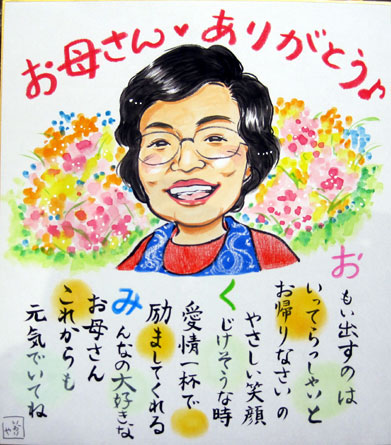 お母さん♥ありがとう♪
おもい出すのは
いってらっしゃいと
お帰りなさいの
やさしい笑顔
くじけそうな時
愛情一杯で
励ましてくれる
みんなの大好きな
お母さん
これからも
元気でいてね